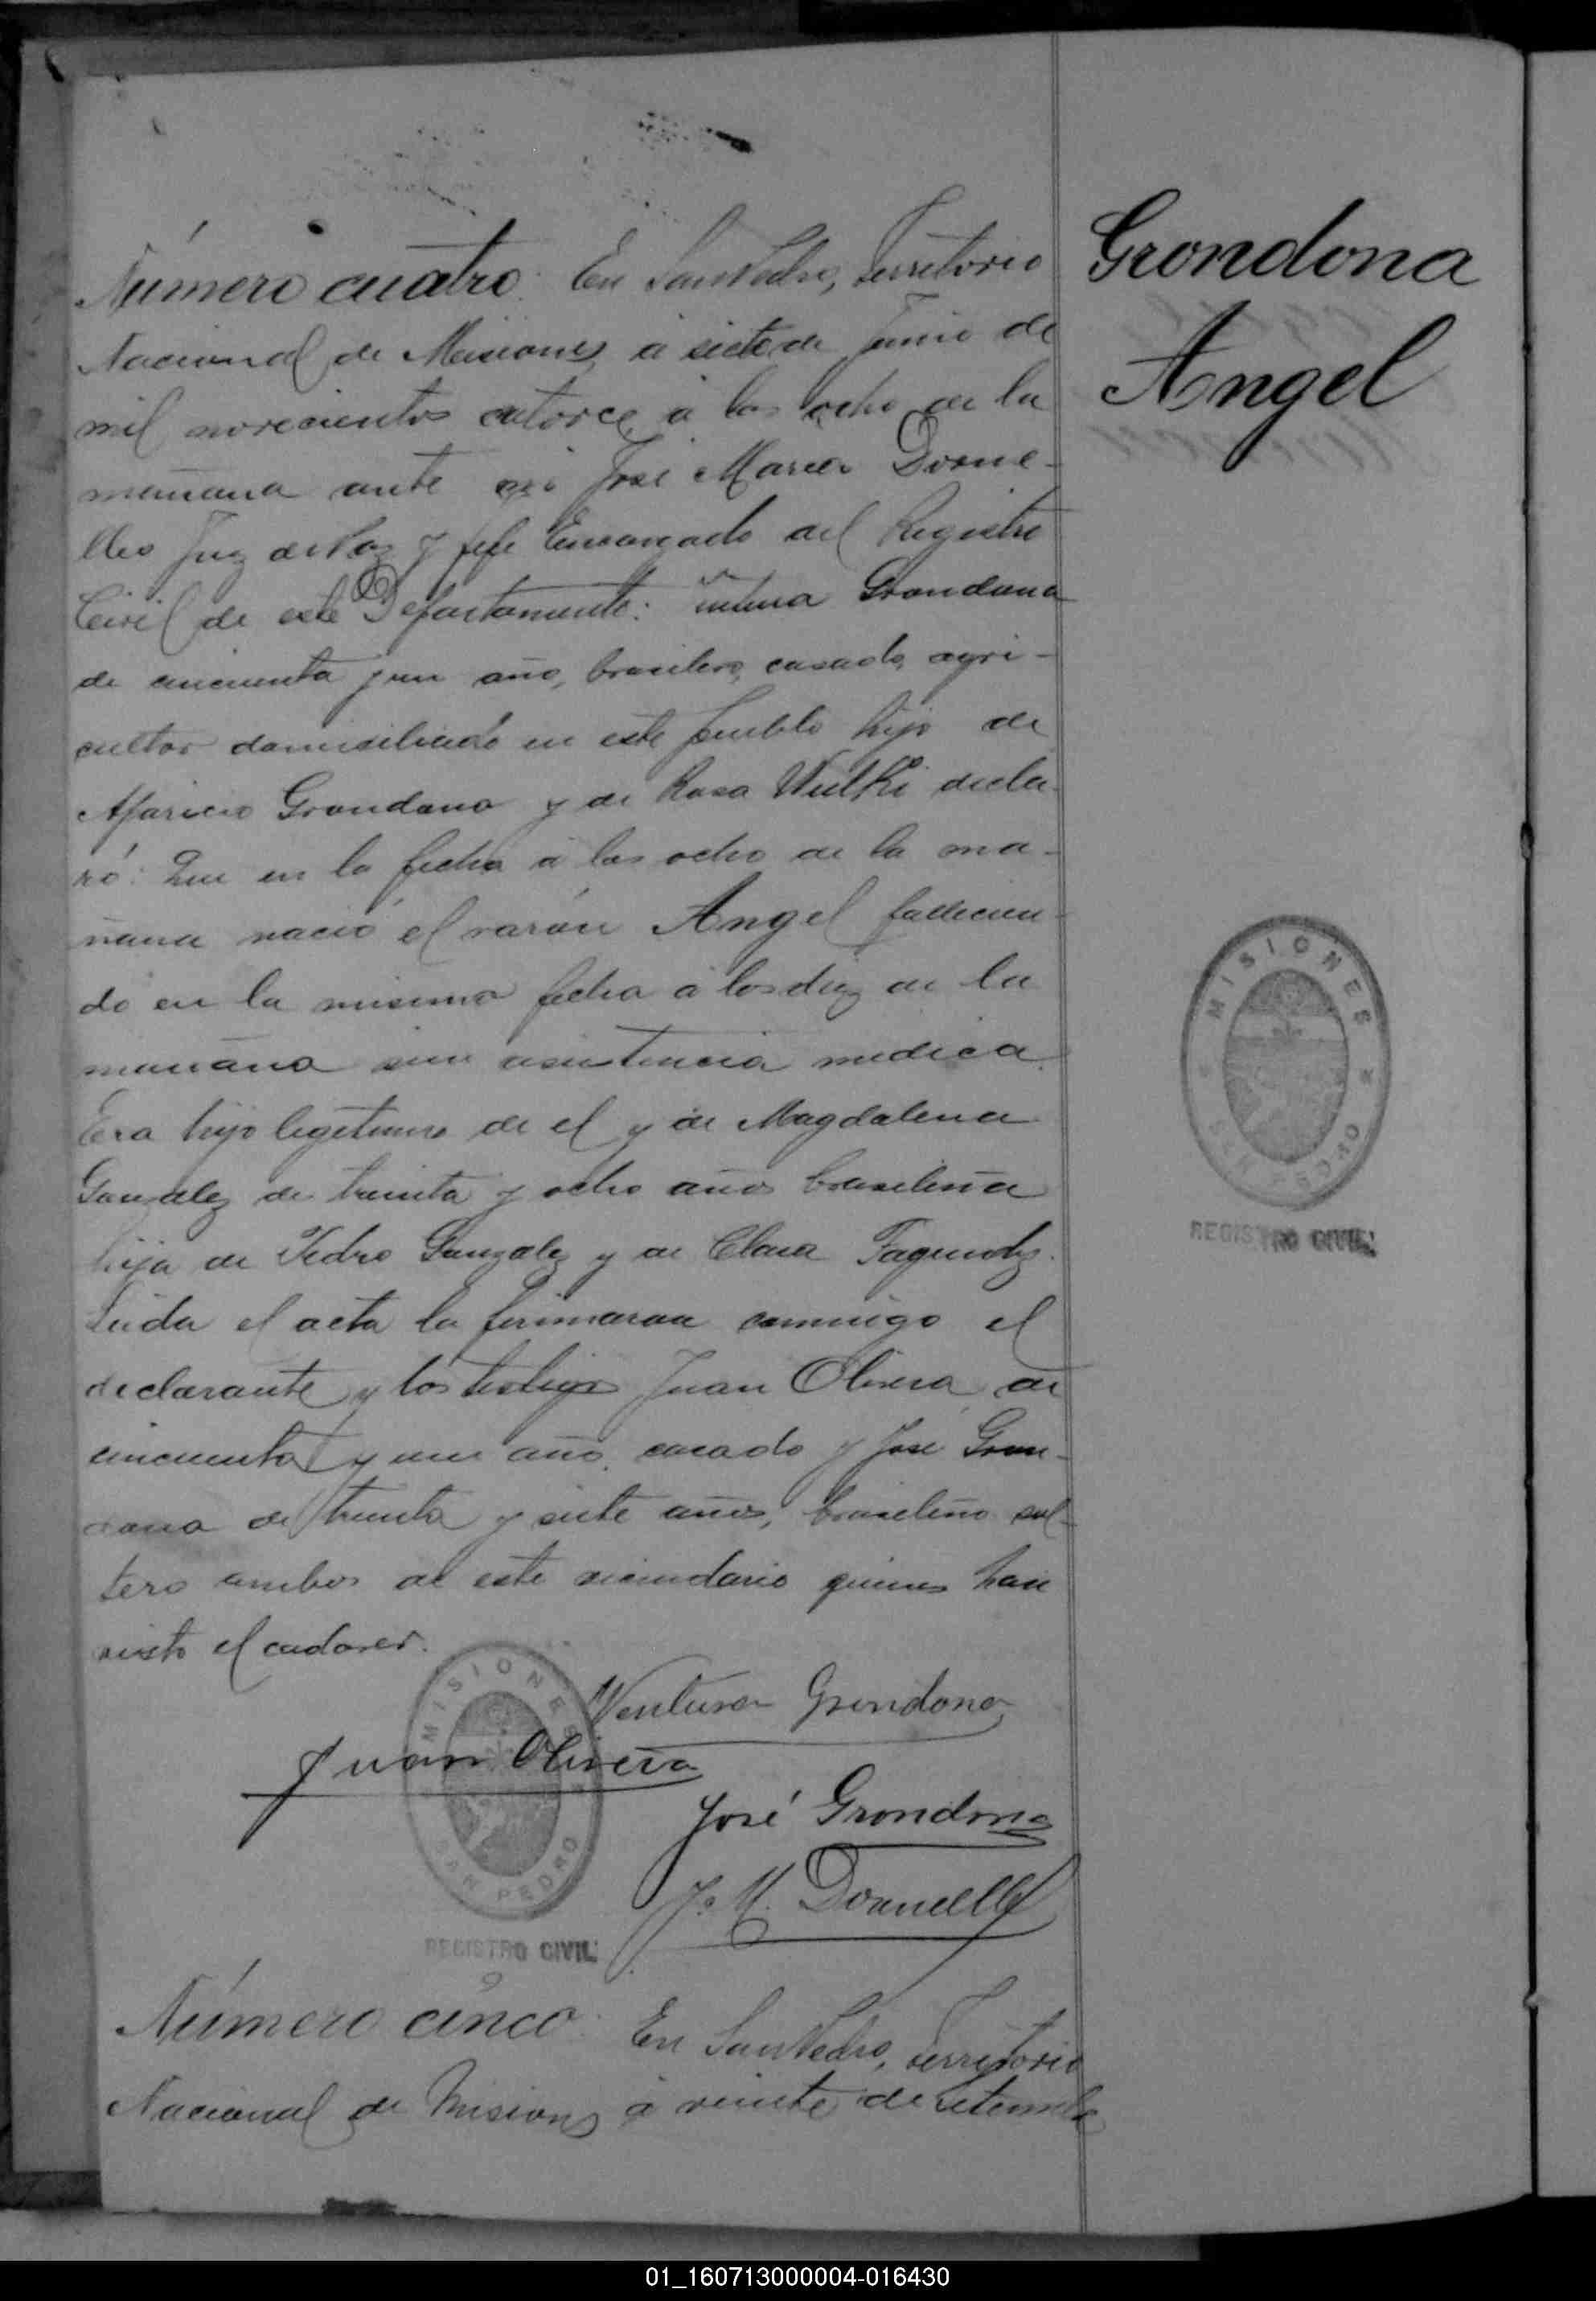 Número cuatro: En San Pedro, Territorio
Nacional de Misiones, á siete de Junio de
mil novecientos catorce, á las ocho de la
mañana ante mi José Maria Dorne-
lles Juez de Paz y Jefe Encargado del Registro
Civil de este Departamento: Grondona
de cincuenta y un año, brasilero, casado, agri-
cultor domisiliado en este pueblo hijo de
Aparicio Grondona y de Rosa declа-
ró: Que en la fecha á las ocho de la ma-
ñana nació el varón Angel fallecien-
do en la misma fecha á las diez de la
mañana sin asistencia medica.
Era hijo legitimo de el y de Magdalena
Gonzalez de treinta y ocho años brasileña
hija de Pedro Gonzalez y de Clara Fagundez.
Leida el acta la firmaron conmigo el
declarante y los testigos Juan Olivera de
cincuenta y un año, casado y José Gron-
dona de treinta y siete años, brasileño sol-
tero ambos de este vecindario quienes han
visto el cadaver.
Ventura Grondona
Juan Olivera
José Grondona
J. M. Dornelles
MISIONES
SAN PEDRO
REGISTRO CIVIL
Número cinco: En San Pedro, Territorio
Nacional de Misiones á veinte de Setiembre
Grondona
Angel
MISIONES
SAN PEDRO
REGISTRO CIVIL
01_160713000004-016430